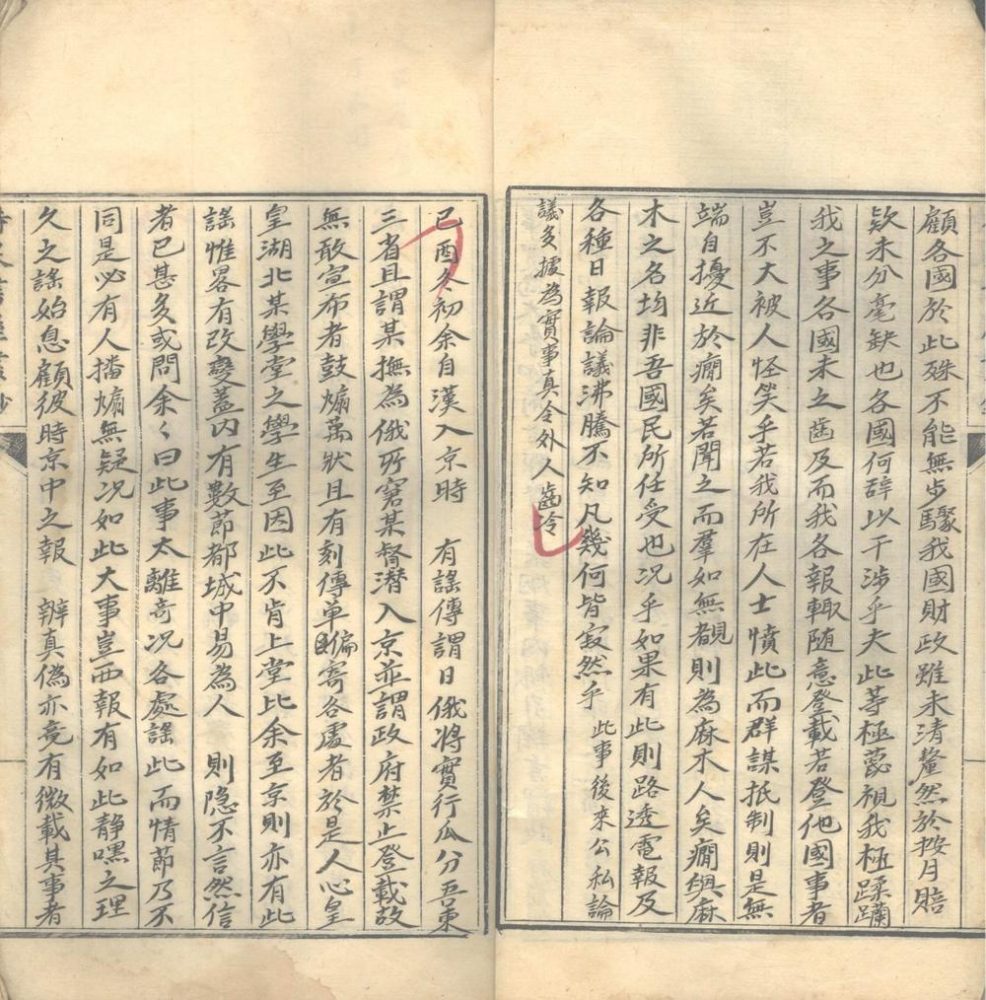 顧各國於此殊不能無步驟我國財政雖未清釐然於按月賠
欵未分毫缺也各國何辭以干涉乎夫此等極藐視我極蹂躪
我之事各國未之齒及而我各報輒随意登載若登他國事者
豈不大被人怪笑乎若我所在人士憤此而群謀抵制則是無
端自擾近於癇矣若聞之而羣如無覩則為麻木人矣癇與麻
木之名均非吾國民所任受也况乎如果有此則路透電報及
各種日報論議沸騰不知凡幾何皆寂然乎 此事後來公私論
議多據為實事真令外人齒冷
己酉冬初余自漢入京時 有謡傳謂日俄將實行瓜分吾東
三省且謂某撫為俄所窘某督潛入京並謂政府禁止登載故
無敢宣布者鼓煽萬狀且有刻傳單徧寄各處者於是人心皇
皇湖北某學堂之學生至因此不肯上堂比余至京則亦有此
謡惟畧有改變蓋内有數節都城中易為人 則隐不言然信
者已甚多或問余〻曰此事太離竒况各處謡此而情節乃不
同是必有人播煽無疑况如此大事豈西報有如此静嘿之理
久之謡始息顧彼時京中之報 辨真偽亦竟有微載其事者